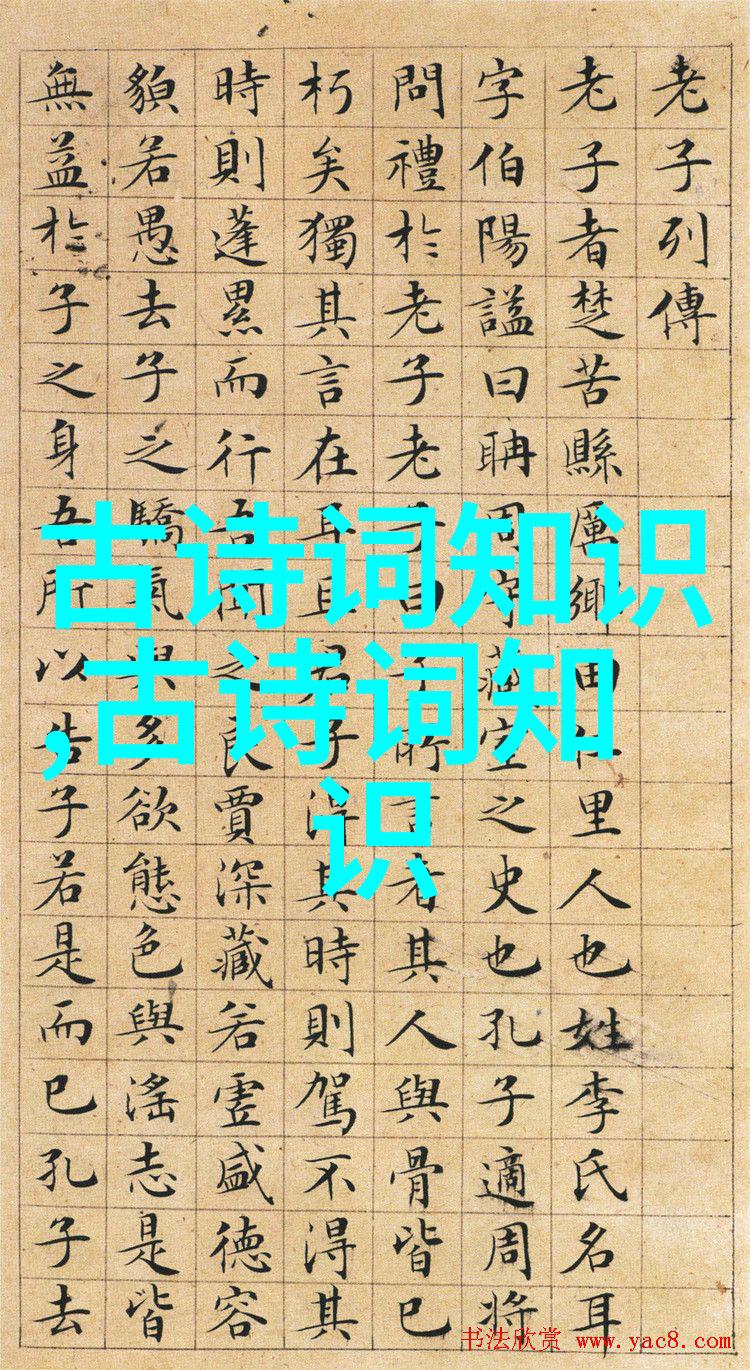 老子列傳
老子者楚苦縣厲鄉曲仁里人也姓李氏名耳
字伯陽謚曰聃周守藏室之史也孔子適周將
問禮於老子老子曰子所言者其人與骨皆已
朽矣獨其言在耳且君子得其時則駕不得其
時則蓬累而行吾聞之良賈深藏若虛盛德容
貌若愚去子之驕氣與多欲態色與淫志是皆
無益於子之身吾所以告子若是而已孔子去
古诗词知识
,古诗词知
识
书法欣赏 www.yac8.com